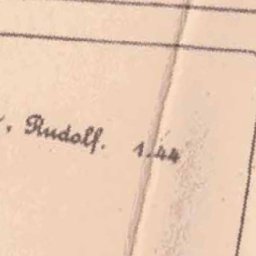 , Rudolf. 1.44